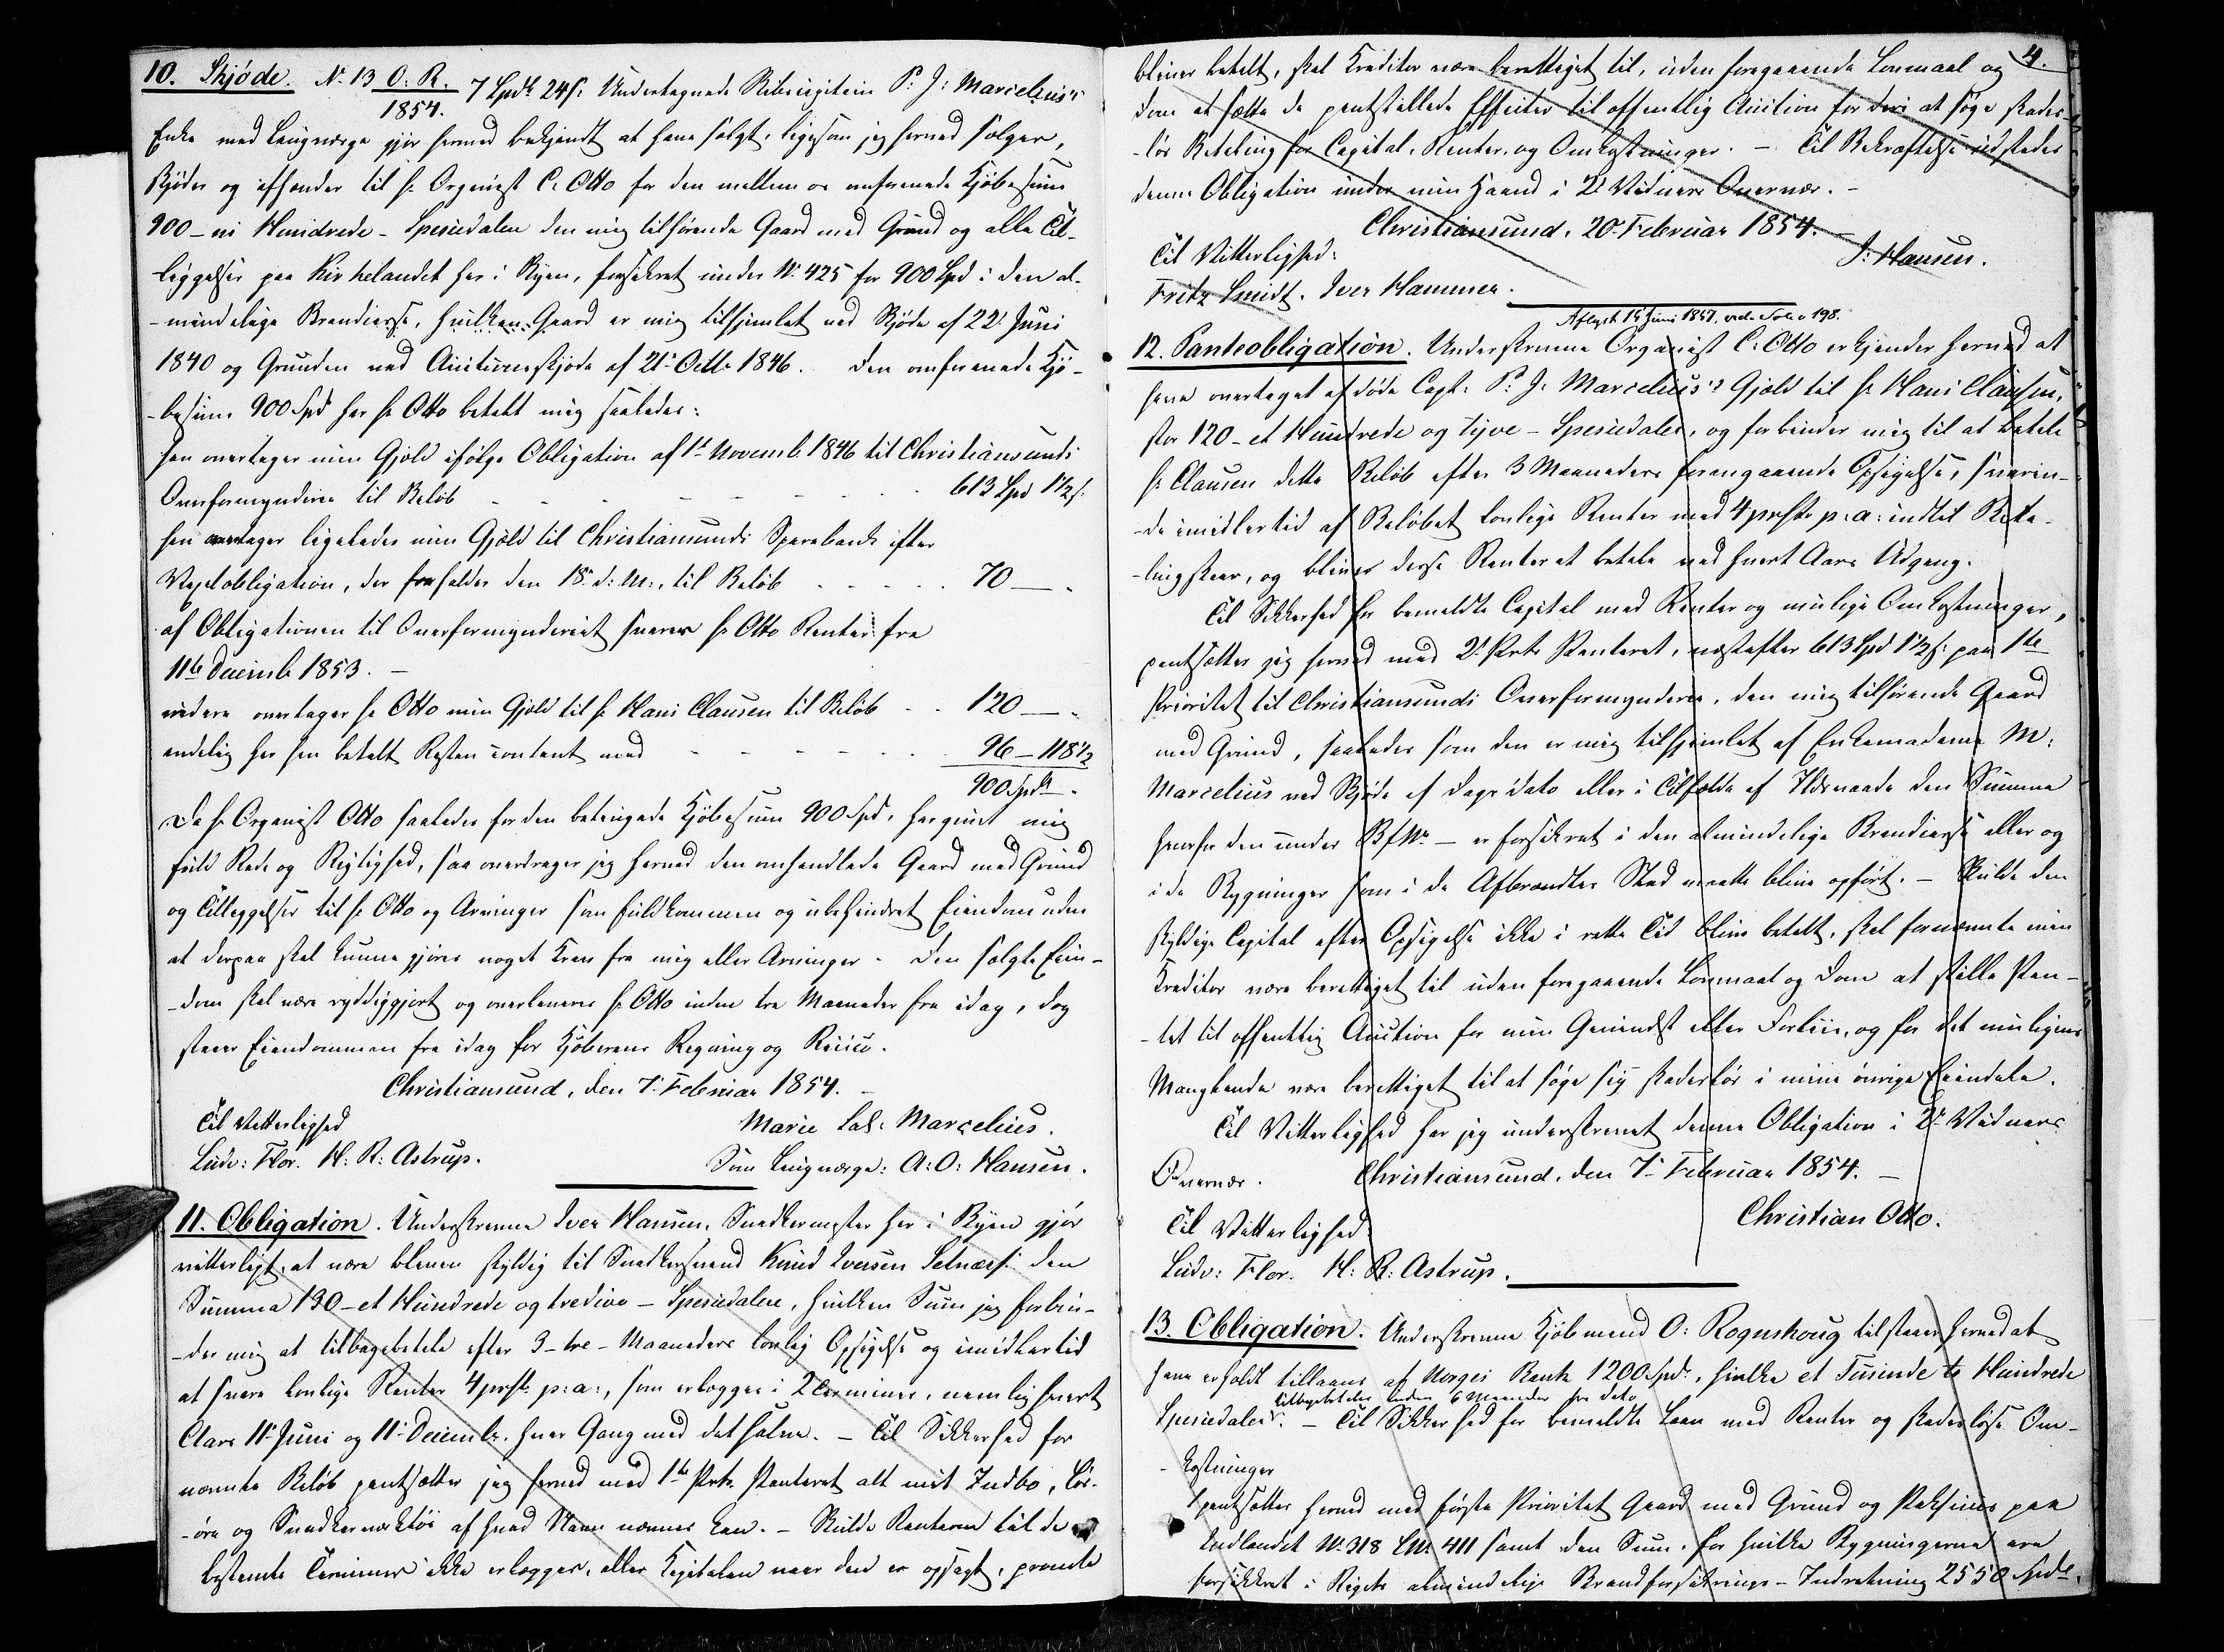 10. Skjøde. No 13 O: R. 1854. 7 Spd. 24 s. Undertegnede Skibscapitein P: J: Marcelius's
Enke med Laugværge gjør hermed bekjendt at have solgt, ligesom jeg hermed sælger,
skjøder og afhænder til Hr Organist C: Otto for den mellem os omforenede Kjøbesum
900 - ni Hundrede - Speciedaler den mig tilhørende Gaard med Grund og alle Til-
-liggelser paa Kirkelandet her i Byen, forsikret under No 425 for 900 Spd i den al-
-mindelige Brandcasse, hvilken Gaard er mig tilhjemlet ved Skjøde af 22d Juni
1840 og Grunden ved Auctionsskjøde af 21d Octbr 1846. Den omforenede Kjø-
-besum 900 Spd har Hr Otto betalt mig saaledes:
han overtager min Gjæld ifølge Obligation af 1ste Novemb. 1846 til Christiansunds
Overformynderie til Beløb - - - - - - - 613 Spd 1½ s.
han overtager ligeledes min Gjæld til Christiansunds Sparebank efter
Vexelobligation, der forfalder den 18de d: M:, til Beløb - - - - 70 — "
af Obligationen til Overformynderiet svarer Hr Otto Renter fra
11te Decemb. 1853. -
videre overtager Hr Otto min Gjæld til Hr Hans Clausen til Beløb - - 120 — "
endelig har han betalt Resten contant med - - - - - - 96 — 118½
900 Spd. "
Da Hr Organist Otto saaledes for den betingede Kjøbesum 900 Spd, har givet mig
fuld Rede og Rigtighed, saa overdrager jeg hermed den omhandlede Gaard med Grund
og Tilleggelser til Hr Otto og Arvinger som fuldkommen og ubehindret Eiendom uden
at derpaa skal kunne gjøres noget Krav fra mig eller Arvinger. Den solgte Eien-
-dom skal være ryddiggjort og overleveres Hr Otto inden tre Maaneder fra idag, dog
staaer Eiendommen fra idag for Kjøberens Regning og Risico.
Christiansund, den 7de Februar 1854. -
Til Vitterlighed Marie Sal: Marcelius.
Ludv: Flor. H: R: Astrup. Som Laugværge: A: O: Hansen.
11. Obligation. Underskrevne Iver Hansen, Snedkermester her i Byen gjør
vitterligt, at være bleven skyldig til Snedkersvend Knud Iversen Setnæs den
Summa 130 - et Hundrede og tredive - Speciedaler, hvilken Sum jeg forbin-
-der mig at tilbagebetale efter 3 - tre - Maaneders lovlig Opsigelse og imidlertid
at svare lovlige Renter 4 prCt. p: a:, som erlægges i 2 Terminer, nemlig hvert
Aars 11te Juni og 11te Decembr. hver Gang med det halve. - Til Sikkerhed for
nævnte Beløb pantsætter jeg hermed med 1ste Prts Panteret alt mit Indbo, Løs-
-øre og Snedkerværktøi af hvad Navn nævnes kan. - Skulde Renterne til de
bestemte Terminer ikke erlægges, eller Kapitalen naar den er opsagt, promte
4.
bliver betalt, skal Kreditor være berettiget til, uden foregaaende Lovmaal og
Dom at sætte de pantstillede Effecter til offentlig Auction for deri at søge skades-
-løs Betaling for Capital, Renter, og Omkostninger. - Til Bekræftelse udstedes
denne Obligation under min Haand i 2de Vidners Overvær. -
Christiansund, 20de Februar 1854. -
Til Vitterlighed: I: Hansen.
Fritz Smidt. Iver Hammer.
Aflyst 15 Juni 1857, vide Folio 198.
12. Panteobligation. Underskrevne Organist C: Otto erkjender hermed at
have overtaget afdøde Capt: P: J: Marcelius's Gjæld til Hr Hans Clausen,
stor 120 - et Hundrede og tyve - Speciedaler, og forbinder mig til at betale
Hr Clausen dette Beløb efter 3 Maaneders foregaaende Opsigelse, svaren-
-de imidlertid af Beløbet lovlige Renter med 4 prCto p: a: indtil Beta-
-ling skeer, og bliver disse Renter at betale ved hvert Aars Udgang.
Til Sikkerhed for bemeldte Capital med Renter og mulige Omkostninger,
pantsætter jeg hermed med 2den Prts Panteret, næstefter 613 Spd 1½ s. paa 1ste
Prioritet til Christiansunds Overformynderie, den mig tilhørende Gaard
med Grund, saaledes som den er mig tilhjemlet af Enkemadame M:
Marcelius ved Skjøde af Dags dato eller i Tilfælde af Ildsvaade den Summa
hvorfor den under Bf No — er forsikret i den almindelige Brandcasse eller og
i de Bygninger som i de Afbrændtes Sted maatte blive opført. - Skulde den
skyldige Capital efter Opsigelse ikke i rette Tid blive betalt, skal fornævnte min
Kreditor være berettiget til uden foregaaende Lovmaal og Dom at stille Pan-
-tet til offentlig Auction for min Gevindst eller Forliis, og for det muligens
Manglende være berettiget til at søge sig skadesløs i mine øvrige Eiendele.
Til Vitterlighed har jeg underskrevet denne Obligation i 2de Vidners
Overvær. Christiansund, den 7de Februar 1854. -
Til Vitterlighed: Christian Otto.
Ludv: Flor. H: R: Astrup.
13. Obligation. Underskrevne Kjøbmand O: Rognskoug tilstaaer hermed at
have erholdt tillaans af Norges Bank 1200 Spd., hvilke et Tusinde to Hundrede
tilbagebetales inden 6 Maaneder fra dato
Speciedaler. - Til Sikkerhed for bemeldte Laan med Renter og skadesløse Om-
-kostninger
pantsættes hermed med første Prioritet Gaard med Grund og Pakhuus paa
Indlandet No 318 LNo 411 samt den Sum, for hvilke Bygningerne ere
forsikkret i Rigets almindelige Brandforsikrings-Indretning 2550 Spd.